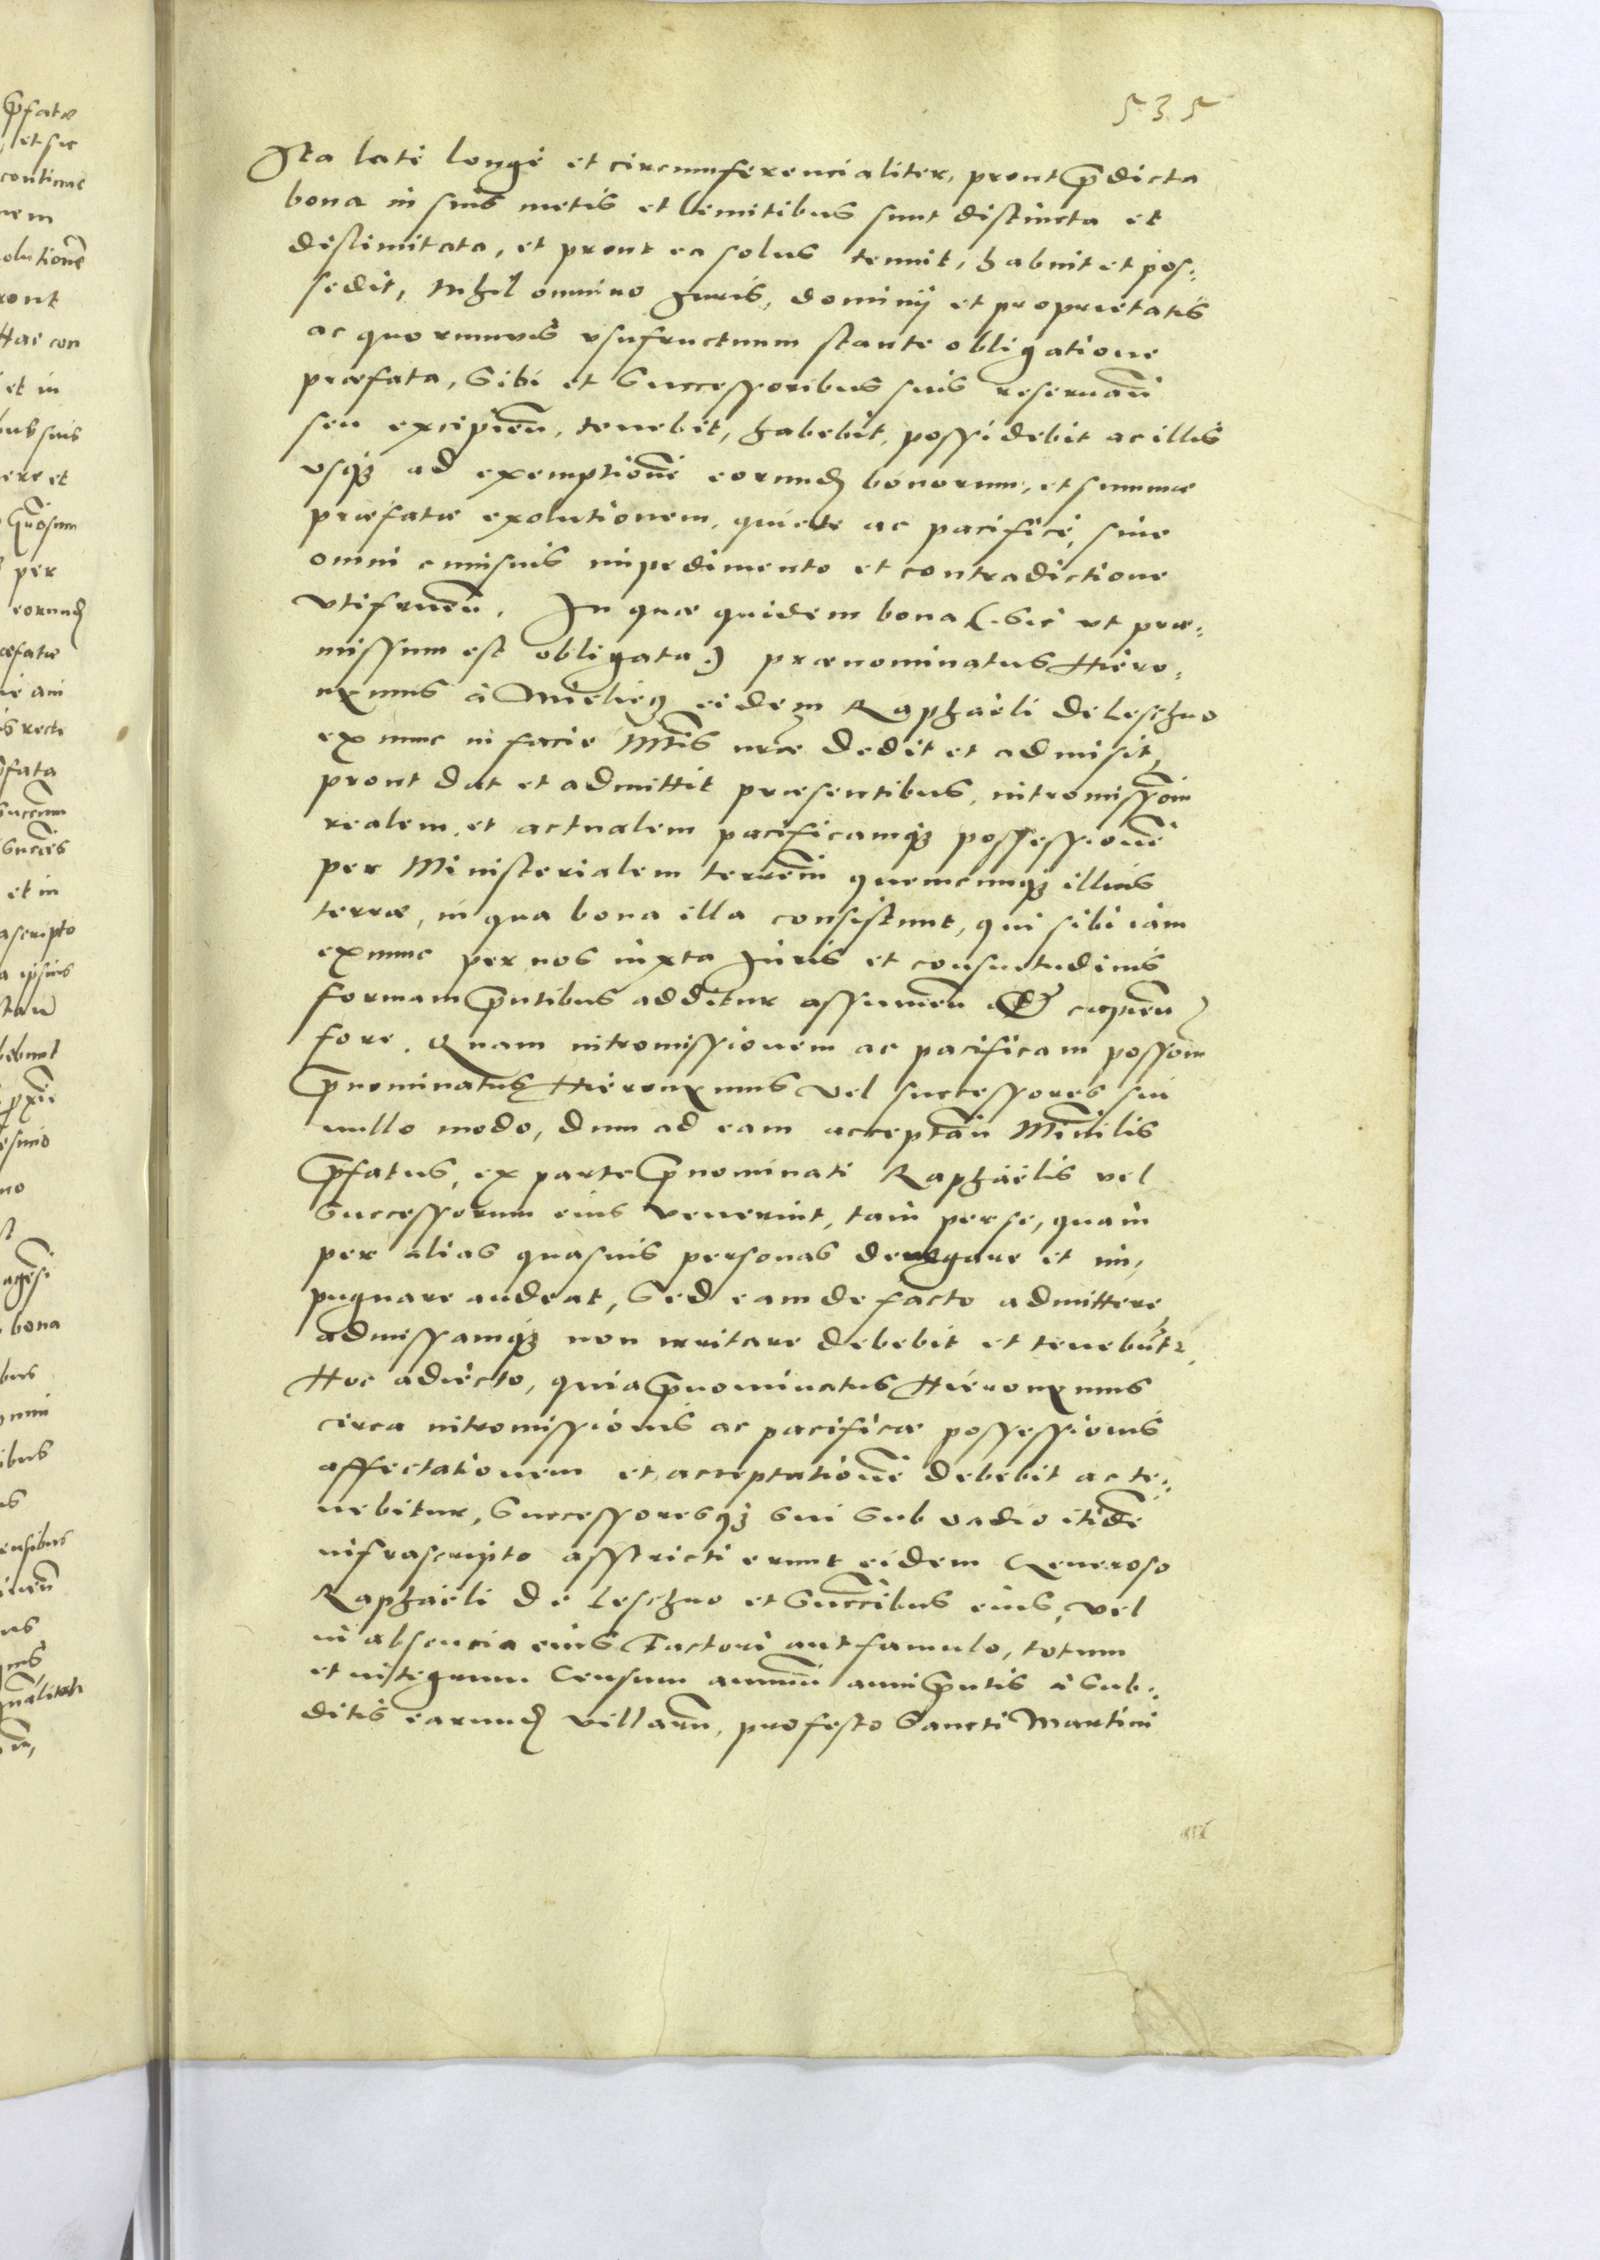 535
Ita latè longè et circumferencialiter, prout p̄dicta
bona in suis metis et limitibus sunt distincta et
dislimitata, et prout ea solus tenuit, habuit et pos,,
sedit, Nihil omnino Juris, dominij et proprietatis
ac quorumvis vsufructuum stante obligatione
præfata, Sibi et Successoribus suis reseruan̄
seu excipien̄, tenebit, habebit, possidebit ac illis
vsq₃ ad exemptionē eorund₎ bonorum, et summæ
præfatæ exolutionem, quiete ac pacificè, sine
omni cuiusuis impedimento et contradictione
vtifruen̄. In quæ quidem bona (. Sic vt præ,,
missum est obligata .) prænominatus Hiero,,
nymus à Mieliecz eidem Raphaëli de Leschno
ex nunc in facie Mtīs nr̄æ dedit et admisit,
prout dat et admittit præsentibus, intromiss̄iom̄
realem et actualem pacificamq₃ possessionē
per Ministerialem terren̄m quemcunq₃ illius
terræ, in qua bona illa consistunt, qui sibi iam
exnunc per nos iuxta Juris et consuetudinis
formam p̄ntibus additur assumen̄ et capien̄
fore. Quam intromissionem ac pacificam possom̄
p̄nominatus Hieronymus vel successores sui
nullo modo, dum ad eam acceptan̄ Min̄ilis
p̄fatus, ex parte p̄nominati Raphaëlis vel
Successorum eius venerint, tam per se, quam
per alias quasuis personas denegare et im,
pugnare audeat, Sed eam de facto admittere,
admissamq₃ non irritare debebit et tenebūtr,
Hoc adiecto, quia p̄nominatus Hieronymus
circa intromissionis ac pacificæ possessionis
affectationem et acceptationē debebit ac te,,
nebitur, Successoresq₃ sui sub vadio itidē
infrascripto asstricti erunt eidem Generoso
Raphaëli de Leschno et Succ̄ibus eius, vel
in absencia eius Factori aut famulo, totum
et integrum Censum annuū anni p̄ntis à Sub,,
ditis earund₎ villarū, pro festo Sancti Martini